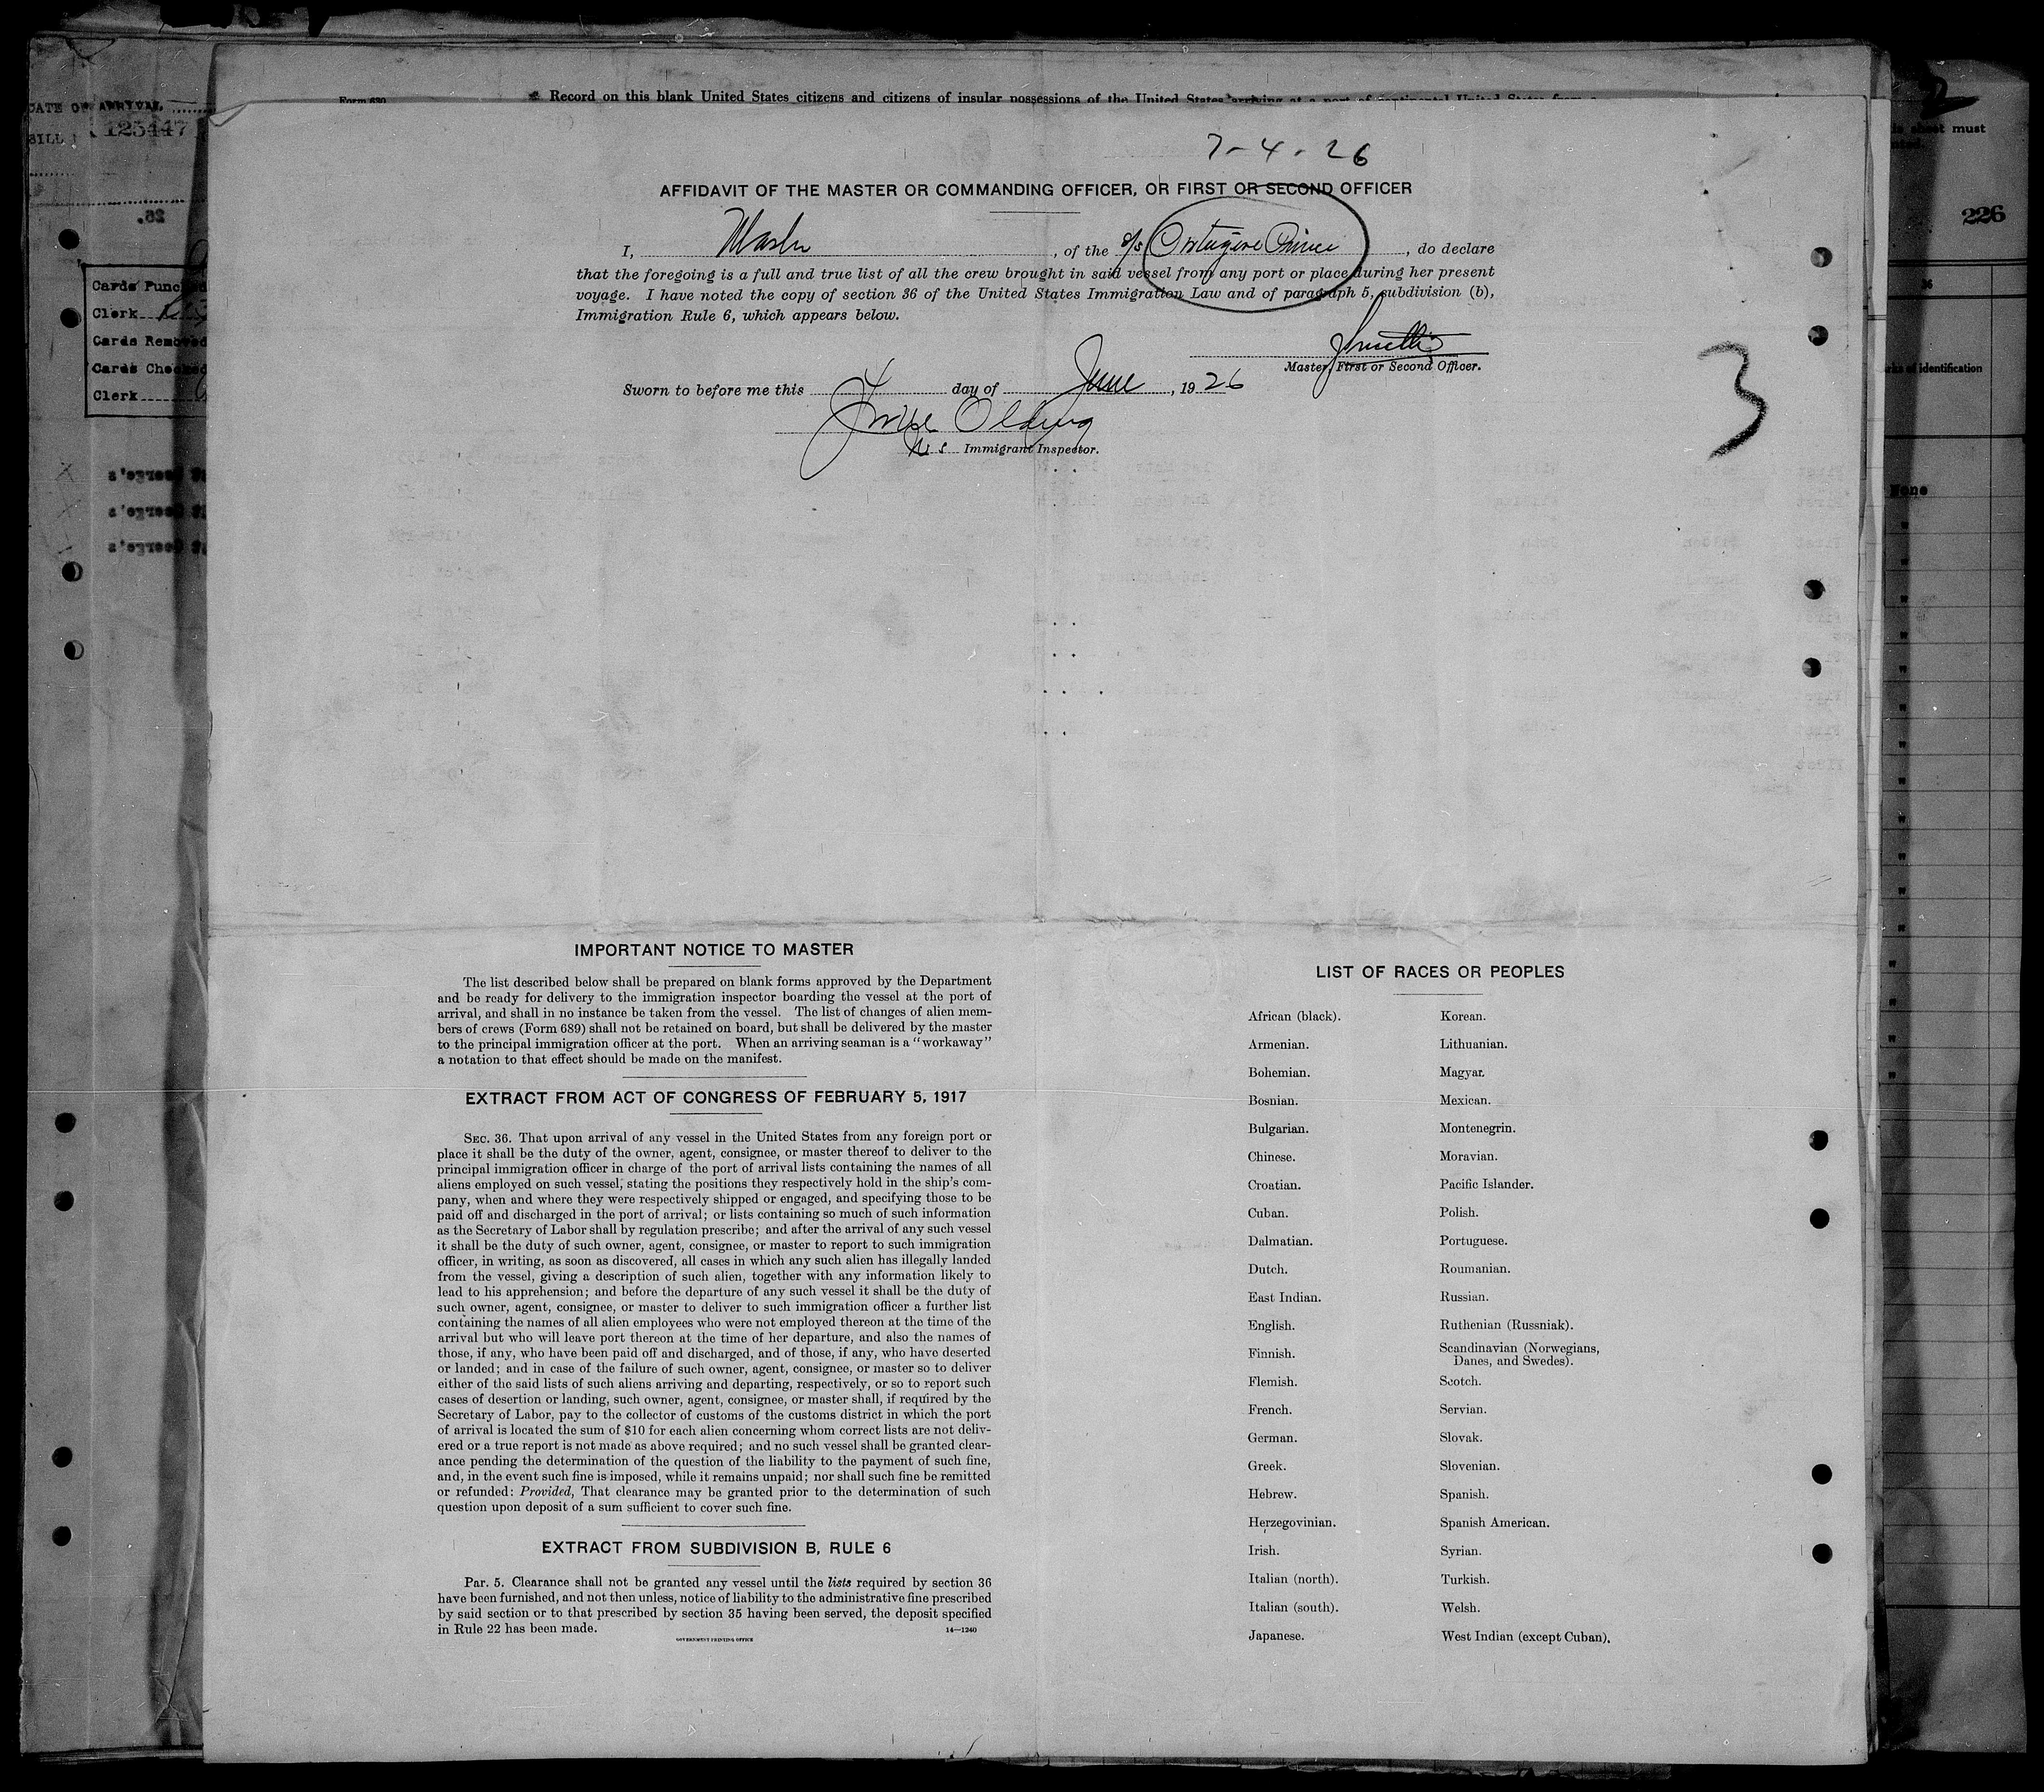 DATE OF ARRIVAL
125447
26.
Cards Punched
Clerk
Cards Removed
Cards Checked
Clerk
Form 630
Record on this blank United States citizens and citizens of insular possessions of the United States arriving at a port of continental United States from a
sheet must
226
36
marks of identification
None
7-4-26
AFFIDAVIT OF THE MASTER OR COMMANDING OFFICER, OR FIRST OR SECOND OFFICER
I, Master, of the S/S Portugese Prince, do declare
that the foregoing is a full and true list of all the crew brought in said vessel from any port or place during her present
voyage. I have noted the copy of section 36 of the United States Immigration Law and of paragraph 5, subdivision (b),
Immigration Rule 6, which appears below.
Master, First or Second Officer.
3
Sworn to before me this 4 day of June, 1926
Immigrant Inspector.
IMPORTANT NOTICE TO MASTER
The list described below shall be prepared on blank forms approved by the Department
and be ready for delivery to the immigration inspector boarding the vessel at the port of
arrival, and shall in no instance be taken from the vessel. The list of changes of alien mem-
bers of crews (Form 689) shall not be retained on board, but shall be delivered by the master
to the principal immigration officer at the port. When an arriving seaman is a "workaway"
a notation to that effect should be made on the manifest.
EXTRACT FROM ACT OF CONGRESS OF FEBRUARY 5, 1917
SEC. 36. That upon arrival of any vessel in the United States from any foreign port or
place it shall be the duty of the owner, agent, consignee, or master thereof to deliver to the
principal immigration officer in charge of the port of arrival lists containing the names of all
aliens employed on such vessel, stating the positions they respectively hold in the ship's com-
pany, when and where they were respectively shipped or engaged, and specifying those to be
paid off and discharged in the port of arrival; or lists containing so much of such information
as the Secretary of Labor shall by regulation prescribe; and after the arrival of any such vessel
it shall be the duty of such owner, agent, consignee, or master to report to such immigration
officer, in writing, as soon as discovered, all cases in which any such alien has illegally landed
from the vessel, giving a description of such alien, together with any information likely to
lead to his apprehension; and before the departure of any such vessel it shall be the duty of
such owner, agent, consignee, or master to deliver to such immigration officer a further list
containing the names of all alien employees who were not employed thereon at the time of the
arrival but who will leave port thereon at the time of her departure, and also the names of
those, if any, who have been paid off and discharged, and of those, if any, who have deserted
or landed; and in case of the failure of such owner, agent, consignee, or master so to deliver
either of the said lists of such aliens arriving and departing, respectively, or so to report such
cases of desertion or landing, such owner, agent, consignee, or master shall, if required by the
Secretary of Labor, pay to the collector of customs of the customs district in which the port
of arrival is located the sum of $10 for each alien concerning whom correct lists are not deliv-
ered or a true report is not made as above required; and no such vessel shall be granted clear-
ance pending the determination of the question of the liability to the payment of such fine,
and, in the event such fine is imposed, while it remains unpaid; nor shall such fine be remitted
or refunded: Provided, That clearance may be granted prior to the determination of such
question upon deposit of a sum sufficient to cover such fine.
EXTRACT FROM SUBDIVISION B, RULE 6
Par. 5. Clearance shall not be granted any vessel until the lists required by section 36
have been furnished, and not then unless, notice of liability to the administrative fine prescribed
by said section or to that prescribed by section 35 having been served, the deposit specified
in Rule 22 has been made.
14—1240
GOVERNMENT PRINTING OFFICE
LIST OF RACES OR PEOPLES
African (black).
Armenian.
Bohemian.
Bosnian.
Bulgarian.
Chinese.
Croatian.
Cuban.
Dalmatian.
Dutch.
East Indian.
English.
Finnish.
Flemish.
French.
German.
Greek.
Hebrew.
Herzegovinian.
Irish.
Italian (north).
Italian (south).
Japanese.
Korean.
Lithuanian.
Magyar.
Mexican.
Montenegrin.
Moravian.
Pacific Islander.
Polish.
Portuguese.
Roumanian.
Russian.
Ruthenian (Russniak).
Scandinavian (Norwegians,
Danes, and Swedes).
Scotch.
Servian.
Slovak.
Slovenian.
Spanish.
Spanish American.
Syrian.
Turkish.
Welsh.
West Indian (except Cuban).